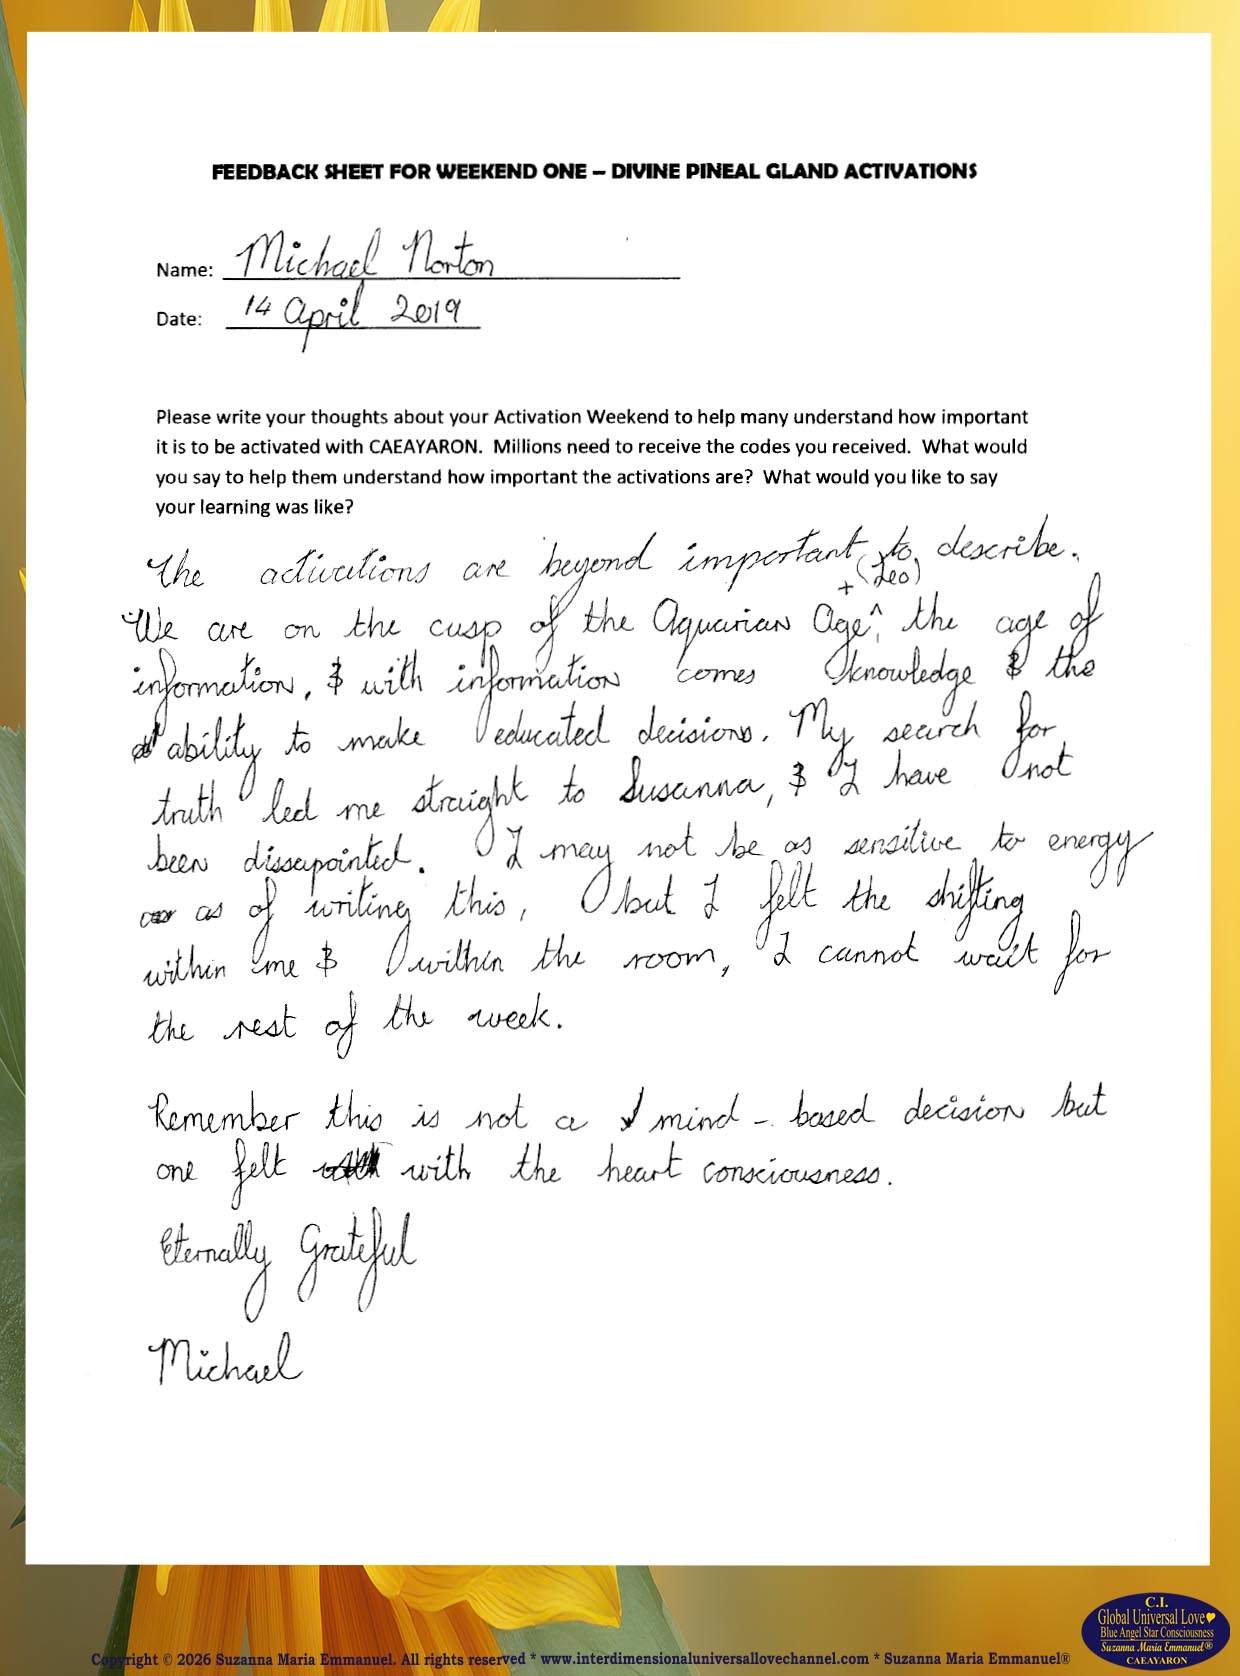 FEEDBACK SHEET FOR WEEKEND ONE – DIVINE PINEAL GLAND ACTIVATIONS
Name: Michael Norton
Date: 14 April 2019
Please write your thoughts about your Activation Weekend to help many understand how important
it is to be activated with CAEAYARON. Millions need to receive the codes you received. What would
you say to help them understand how important the activations are? What would you like to say
your learning was like?
The activations are beyond important to describe.
+ (Leo)
We are on the cusp of the Aquarian Age^, the age of
information, & with information comes knowledge & the
ability to make educated decisions. My search for
truth led me straight to Susanna, & I have not
been dissapointed. I may not be as sensitive to energy
as of writing this, but I felt the shifting
within me & within the room, I cannot wait for
the rest of the week.
Remember this is not a mind - based decision but
one felt with the heart consciousness.
Eternally Grateful
Michael
C.I.
Global Universal Love
Blue Angel Star Consciousness
Suzanna Maria Emmanuel®
CAEAYARON
Copyright © 2026 Suzanna Maria Emmanuel. All rights reserved * www.interdimensionaluniversallovechannel.com * Suzanna Maria Emmanuel®